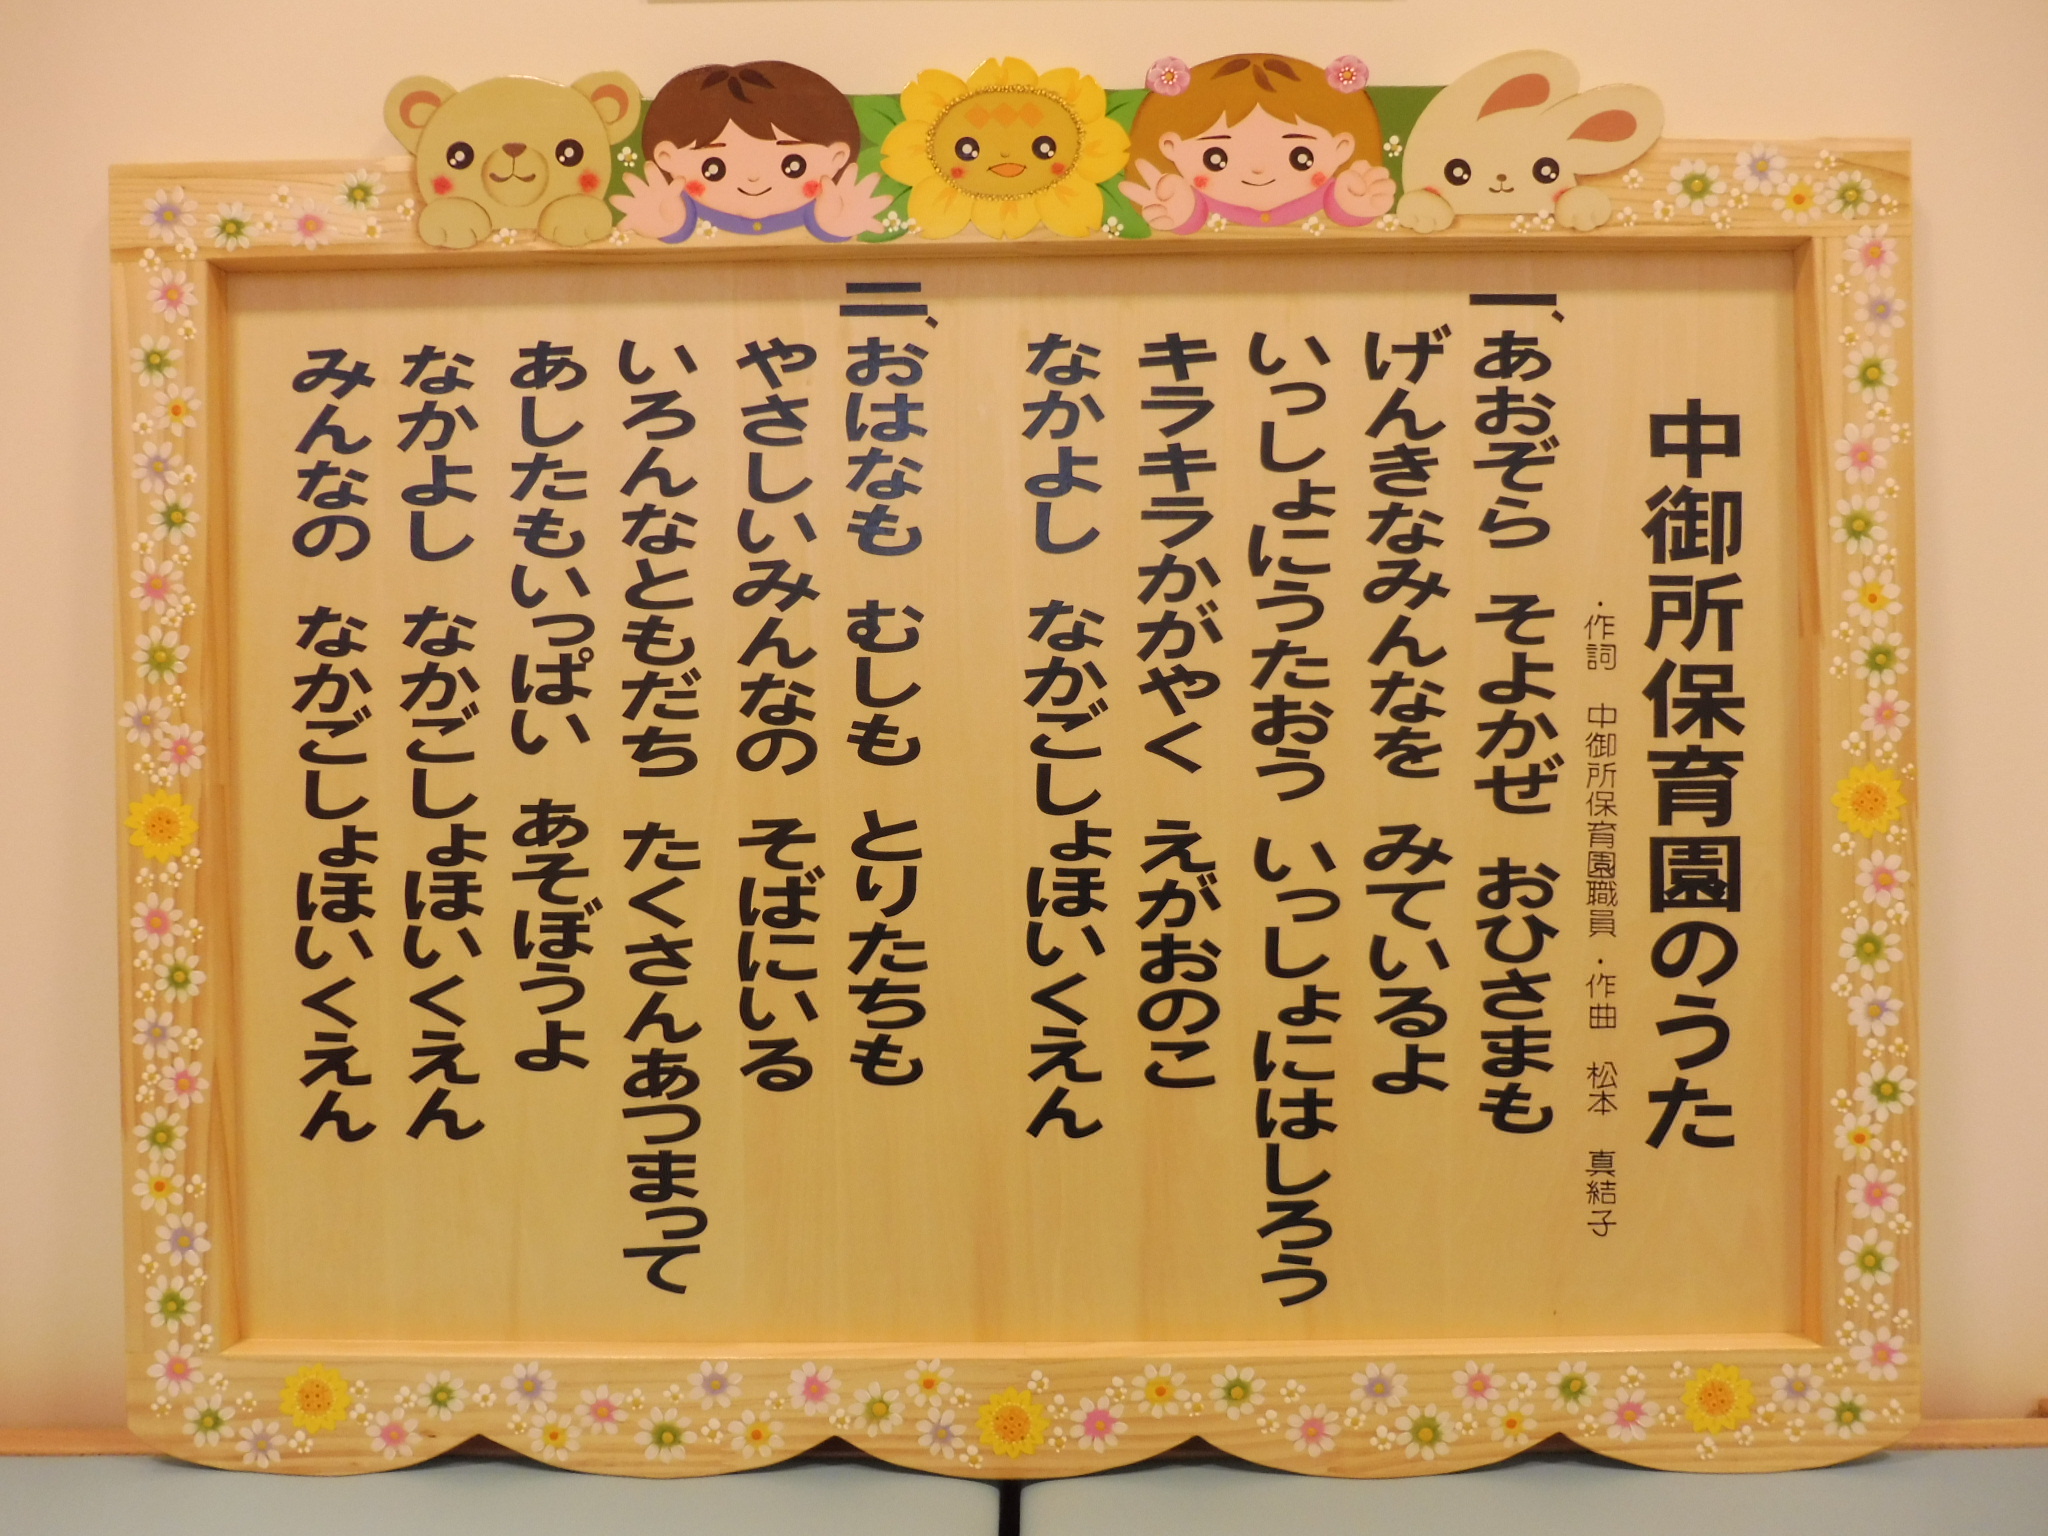 中御所保育園のうた
・作詞　中御所保育園職員・作曲　松本　真結子
一、あおぞら　そよかぜ　おひさまも
げんきなみんなを　みているよ
いっしょにうたおう　いっしょにはしろう
キラキラかがやく　えがおのこ
なかよし　なかごしょほいくえん
二、おはなも　むしも　とりたちも
やさしいみんなの　そばにいる
いろんなともだち　たくさんあつまって
あしたもいっぱい　あそぼうよ
なかよし　なかごしょほいくえん
みんなの　なかごしょほいくえん